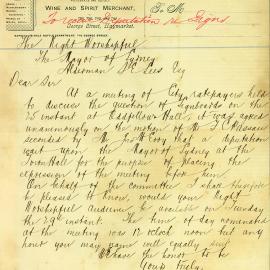 WINE AND SPIRIT MERCHANT,
George Street, Haymarket.
T. M.
To receive deputation re Signs
The Right Worshipful
The Mayor of Sydney
Alderman Lees Esq
Dear Sir
At a meeting of City ratepayers held
to discuss the question of signboards on the
25 instant at Oddfellows Hall, it was agreed
unanimously on the motion of Mr
seconded by Mr Cory that a deputation
wait upon the Mayor of Sydney at the
Town Hall for the purpose of placing the
expression of the meeting before him.
On behalf of the committee I shall therefore
be pleased to know, would your Right
Worshipful audience be available on Tuesday
the 29th instant. The time of day nominated
at the meeting was 12 o'clock noon but any
hour you may name will equally suit
I have the honor to be
Yours truly